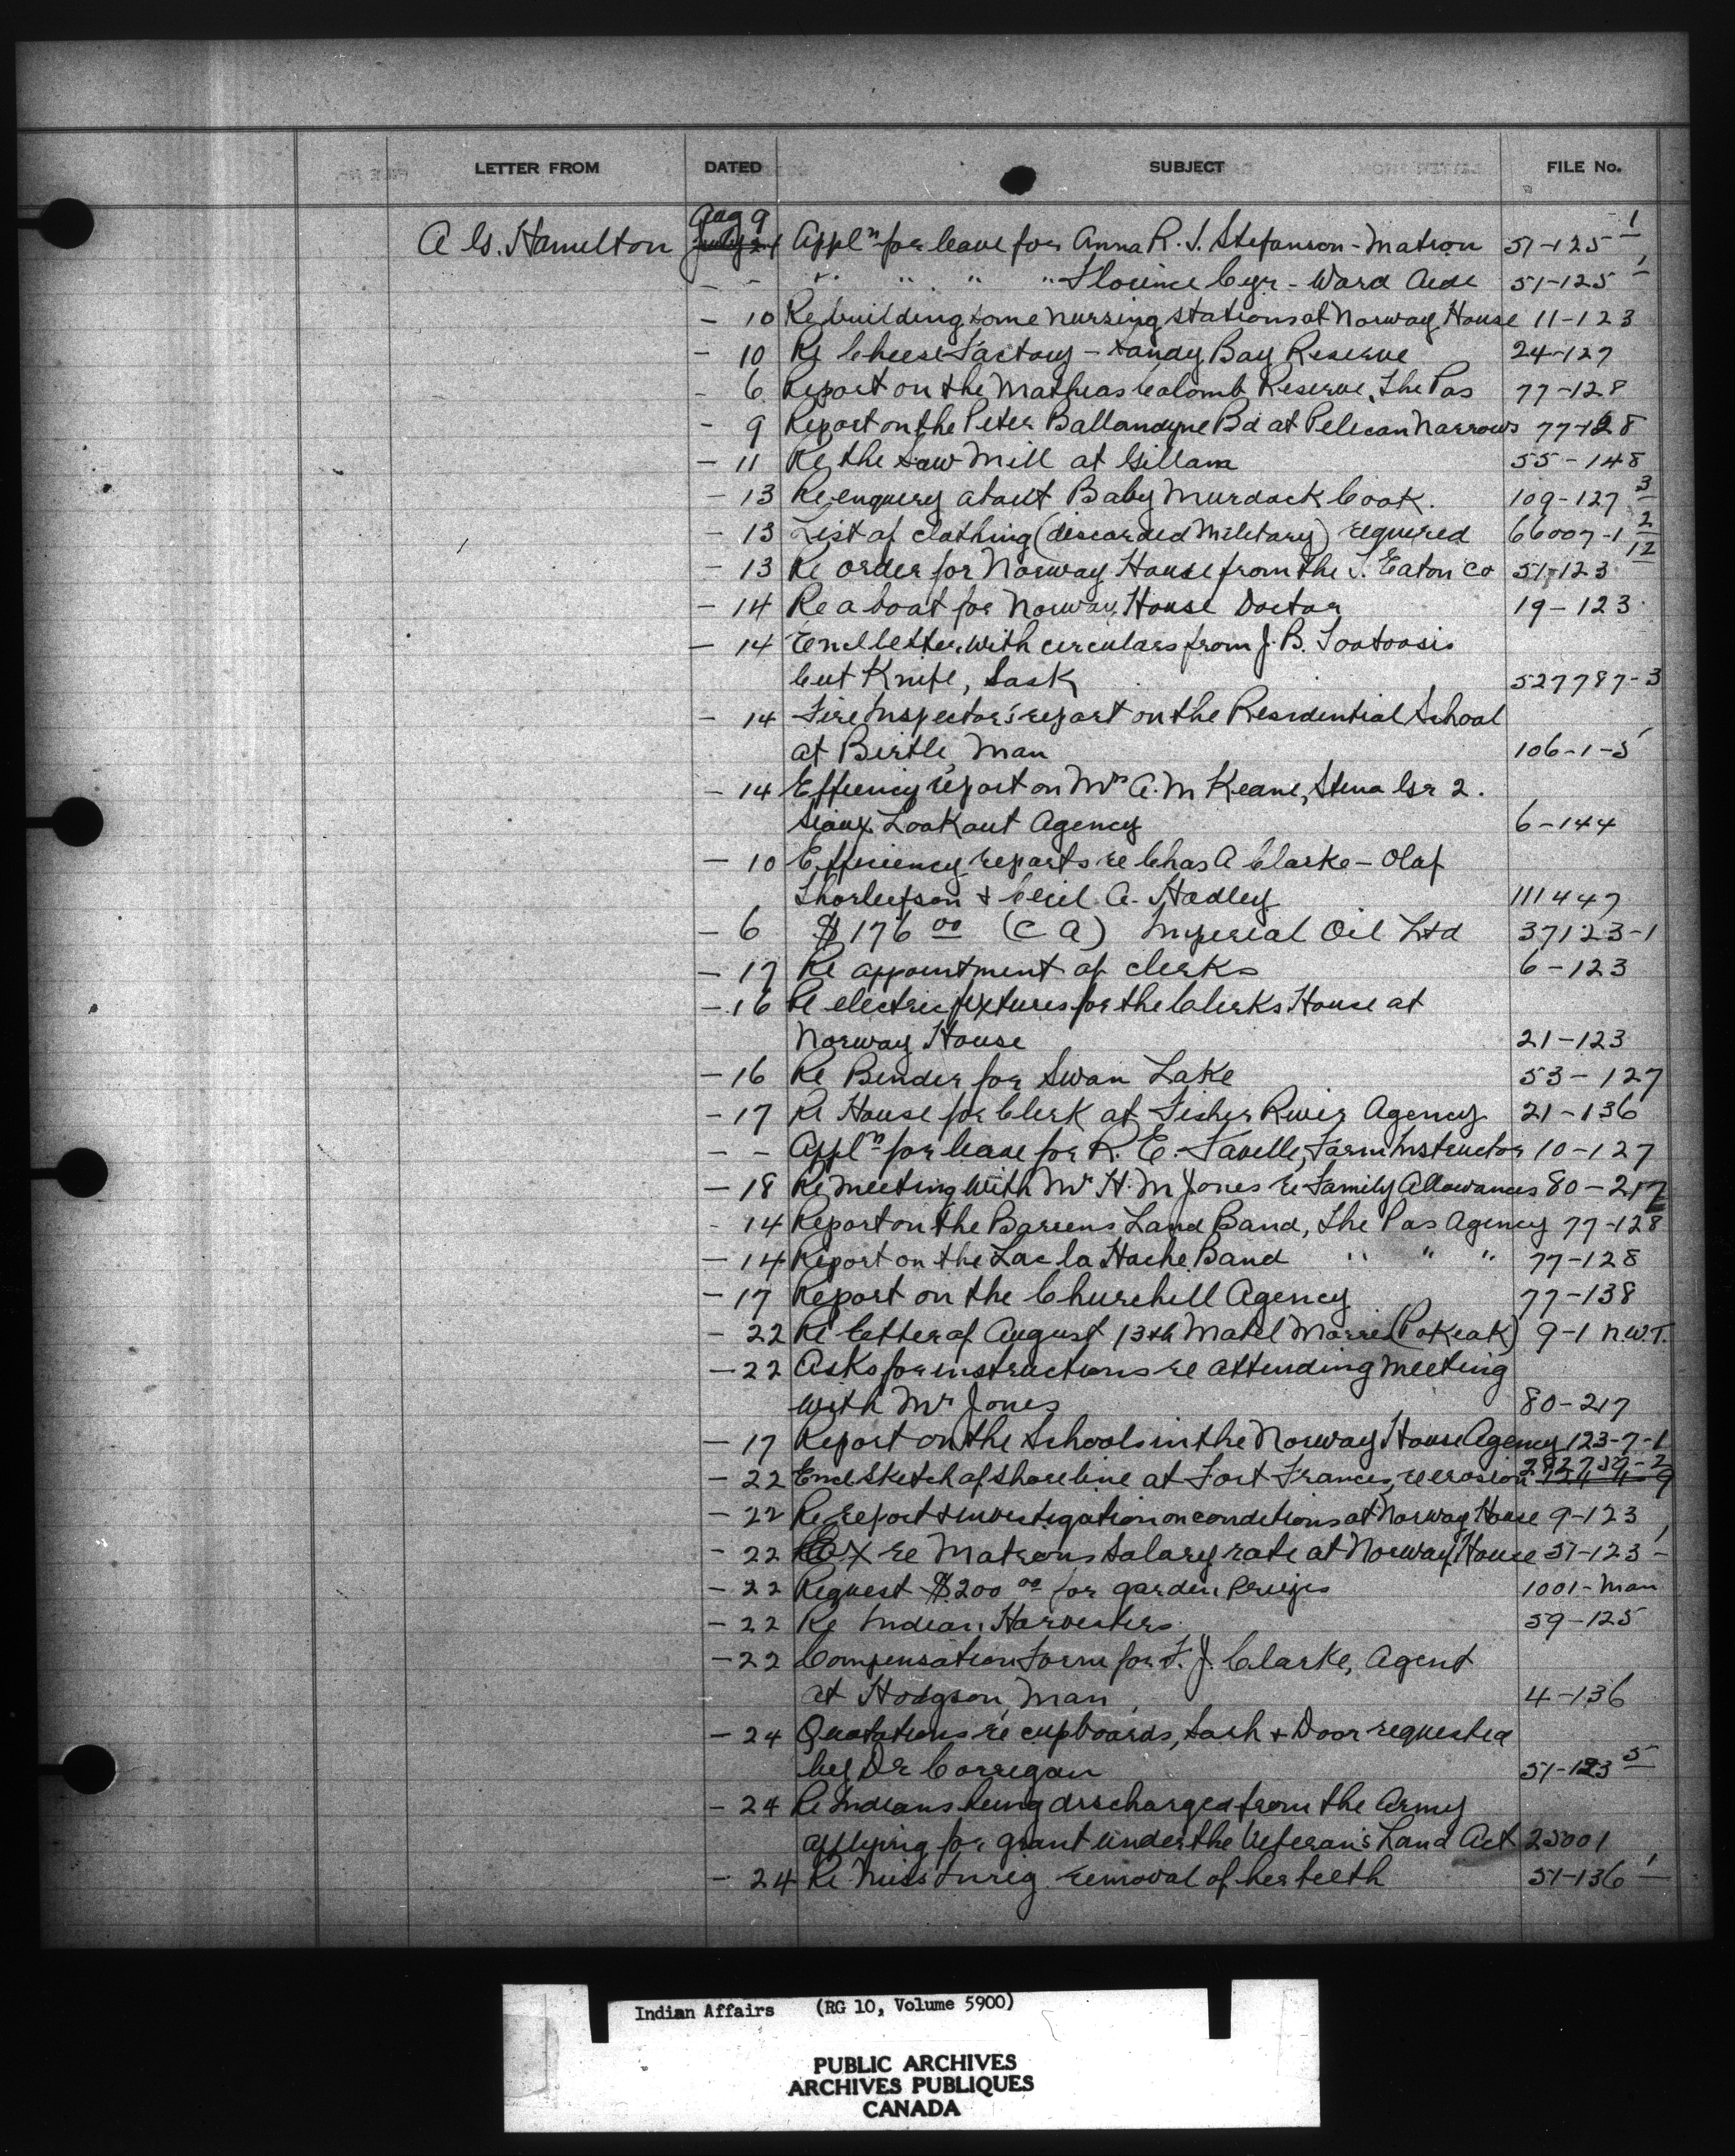 LETTER FROM DATED SUBJECT FILE No.
A G. Hamilton Aug 9 Appl n for leave for Anna R. S. Stefanson - Matron 51-125 1
- - " " " " Florence Cyr - Ward Aide 51-125 1
- 10 Re building some nursing stations at Norway House 11-123
- 10 Re Cheese Factory - Sandy Bay Reserve 24-127
- 6 Report on the Mathias Colomb Reserve, The Pas 77-128
- 9 Report on the Peter Ballandyne Bd at Pelican Narrows 77-128
- 11 Re the Saw Mill at Gillam 55-148
- 13 Re enquiry about Baby Murdock Cook. 109-127 3
- 13 List of clothing (discarded Military) required 66007-1 2
- 13 Re order for Norway House from the T. Eaton Co 51-123 12
- 14 Re a boat for Norway House Doctor 19-123
- 14 Encl letter with circulars from J. B. Tootoosis
Cut Knife, Sask 527787-3
- 14 Fire Inspector's report on the Residential School
at Birtle, Man 106-1-5
- 14 Effiency report on Mrs A. M Keane, Steno Gr 2.
Sioux Lookout Agency 6-144
- 10 Efficiency reports re Chas A Clarke - Olaf
& Cecil A. Hadley 111447
- 6 $176 00 (C A) Imperial Oil Ltd 37123-1
- 17 Re appointment of clerks 6-123
- 16 Re electric fixtures for the Clerks House at
Norway House 21-123
- 16 Re Binder for Swan Lake 53-127
- 17 Re House for Clerk at Fisher River Agency 21-136
- - Appl n for leave for R. E. Favelle, Farm Instructor 10-127
- 18 Re Meeting with Mr H. M Jones re Family Allowances 80-217
- 14 Report on the Barrens Land Band, The Pas Agency 77-128
- 14 Report on the Lac la Hache Band " " " 77-128
- 17 Report on the Churchill Agency 77-138
- 22 Re letter of August 13th Mabel Morris (Pokeak) 9-1 N.W.T.
- 22 Asks for instructions re attending meeting
with Mr Jones 80-217
- 17 Report on the Schools in the Norway House Agency 123-7-1
- 22 Encl sketch of shoreline at Fort Frances, re erosion 282739-2
- 22 Re report & investigation on conditions at Norway House 9-123
- 22 re Matrons Salary rate at Norway House 51-123 1
- 22 Request $200 00 for garden Prizes 1001-Man
- 22 Re Indian Harvesters 59-125
- 22 Compensation Form for F. J. Clarke, Agent
at Hodgson, Man 4-136
- 24 Quotations re cupboards, Sash & Door requested
by Dr Corrigan 51-123 5
- 24 Re Indians being discharged from the Army
applying for grant under the Veteran's Land Act 25001
- 24 Re Miss removal of her teeth 51-136 1
Indian Affairs (RG 10, Volume 5900)
PUBLIC ARCHIVES
ARCHIVES PUBLIQUES
CANADA